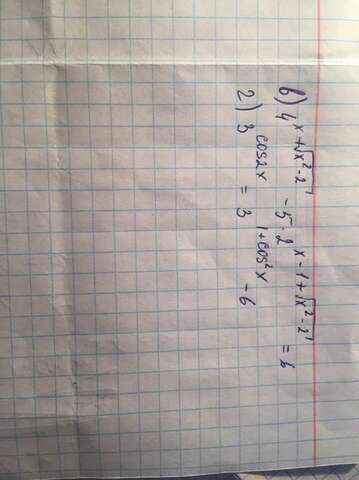 в) 4^(x+√(x²-2)) - 5·2^(x-1+√(x²-2)) = 6
2) 3^(cos2x) = 3^(1+cos²x) - 6